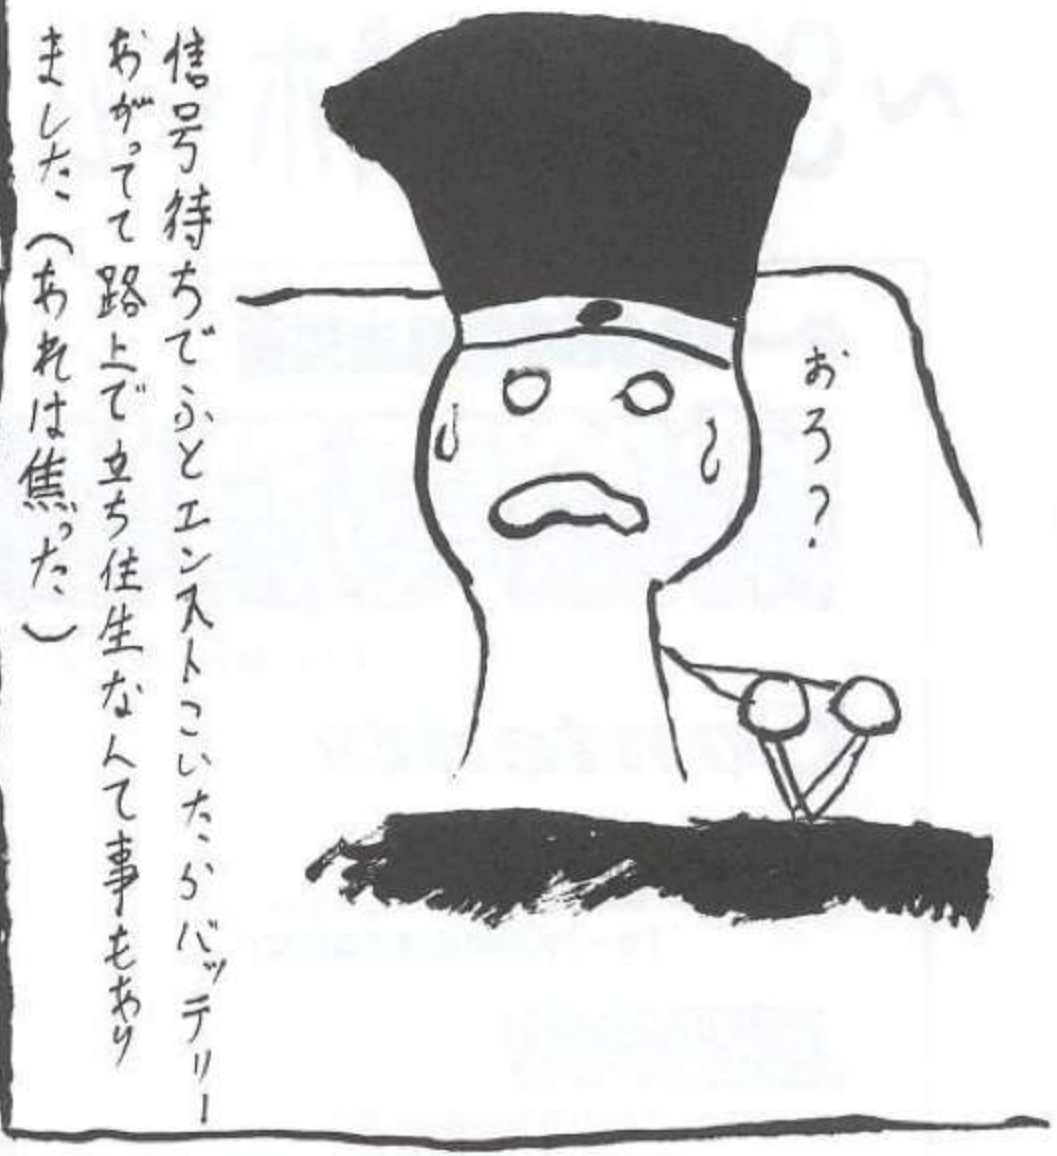 おろ?
信号待ちでふとエンストこいたらバッテリー
おがってて路上で立ち往生なんて事もあり
ました(あれは焦った)